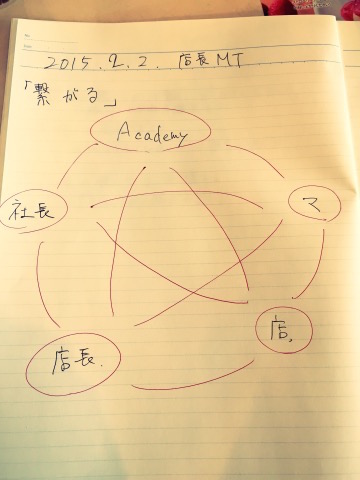 2015.2.2. 店長MT
「繋がる」
Academy
社長
マ
店長.
店.